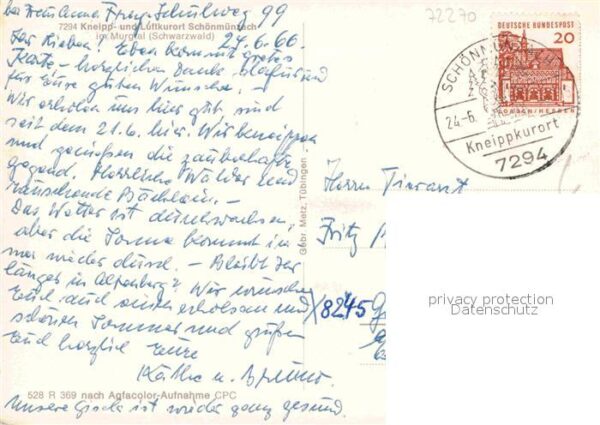 bei Frau Anna Frey, Schulweg 99
7294 Kneipp- und Luftkurort Schönmünzach
im Murgtal (Schwarzwald)
24.6.66
Ihr Lieben! Eben kommt große
Karte - herzlichen Dank dafür und
für Eure guten Wünsche. -
Wir erholen uns hier gut, sind
seit dem 21.6. hier. Wir kneippen
und genießen die zauberhafte
Gegend. Herrliche Wälder und
rauschende Bächlein. -
Das Wetter ist durchwachsen,
aber die Sonne kommt im-
mer wieder durch. - Bleibt Ihr
länger in Altenberg? Wir wünschen
Euch auch einen erholsamen und
schönen Sommer und grüßen
Euch herzlich Eure
Käthe u. Bruno.
528 R 369 nach Agfacolor-Aufnahme CPC
Unsere Gisela ist wieder ganz gesund.
Gebr. Metz, Tübingen
72270
DEUTSCHE BUNDESPOST
20
LORSCH/HESSEN
SCHÖNMÜN
24-6.
Kneippkurort
7294
Herrn Tierarzt
Fritz
8245
privacy protection
Datenschutz